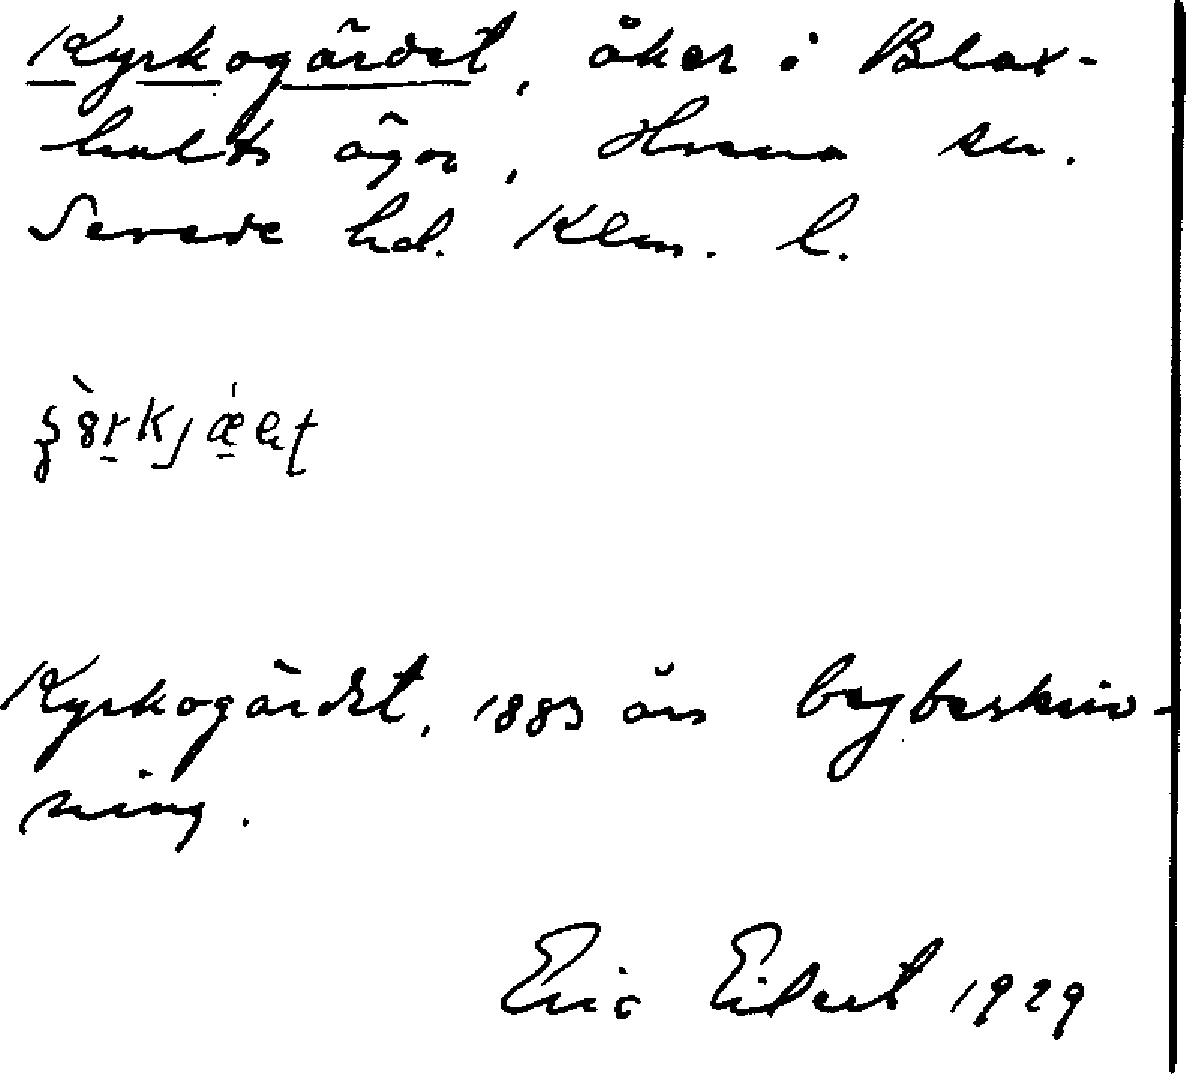 Kyrkogärdet, åker i Blax-
hults ägor, sn.
Sevede hd. Klm. l.
Kyrkogärdet, 1883 års bybeskriv-
ning.
Eric Eilert 1929